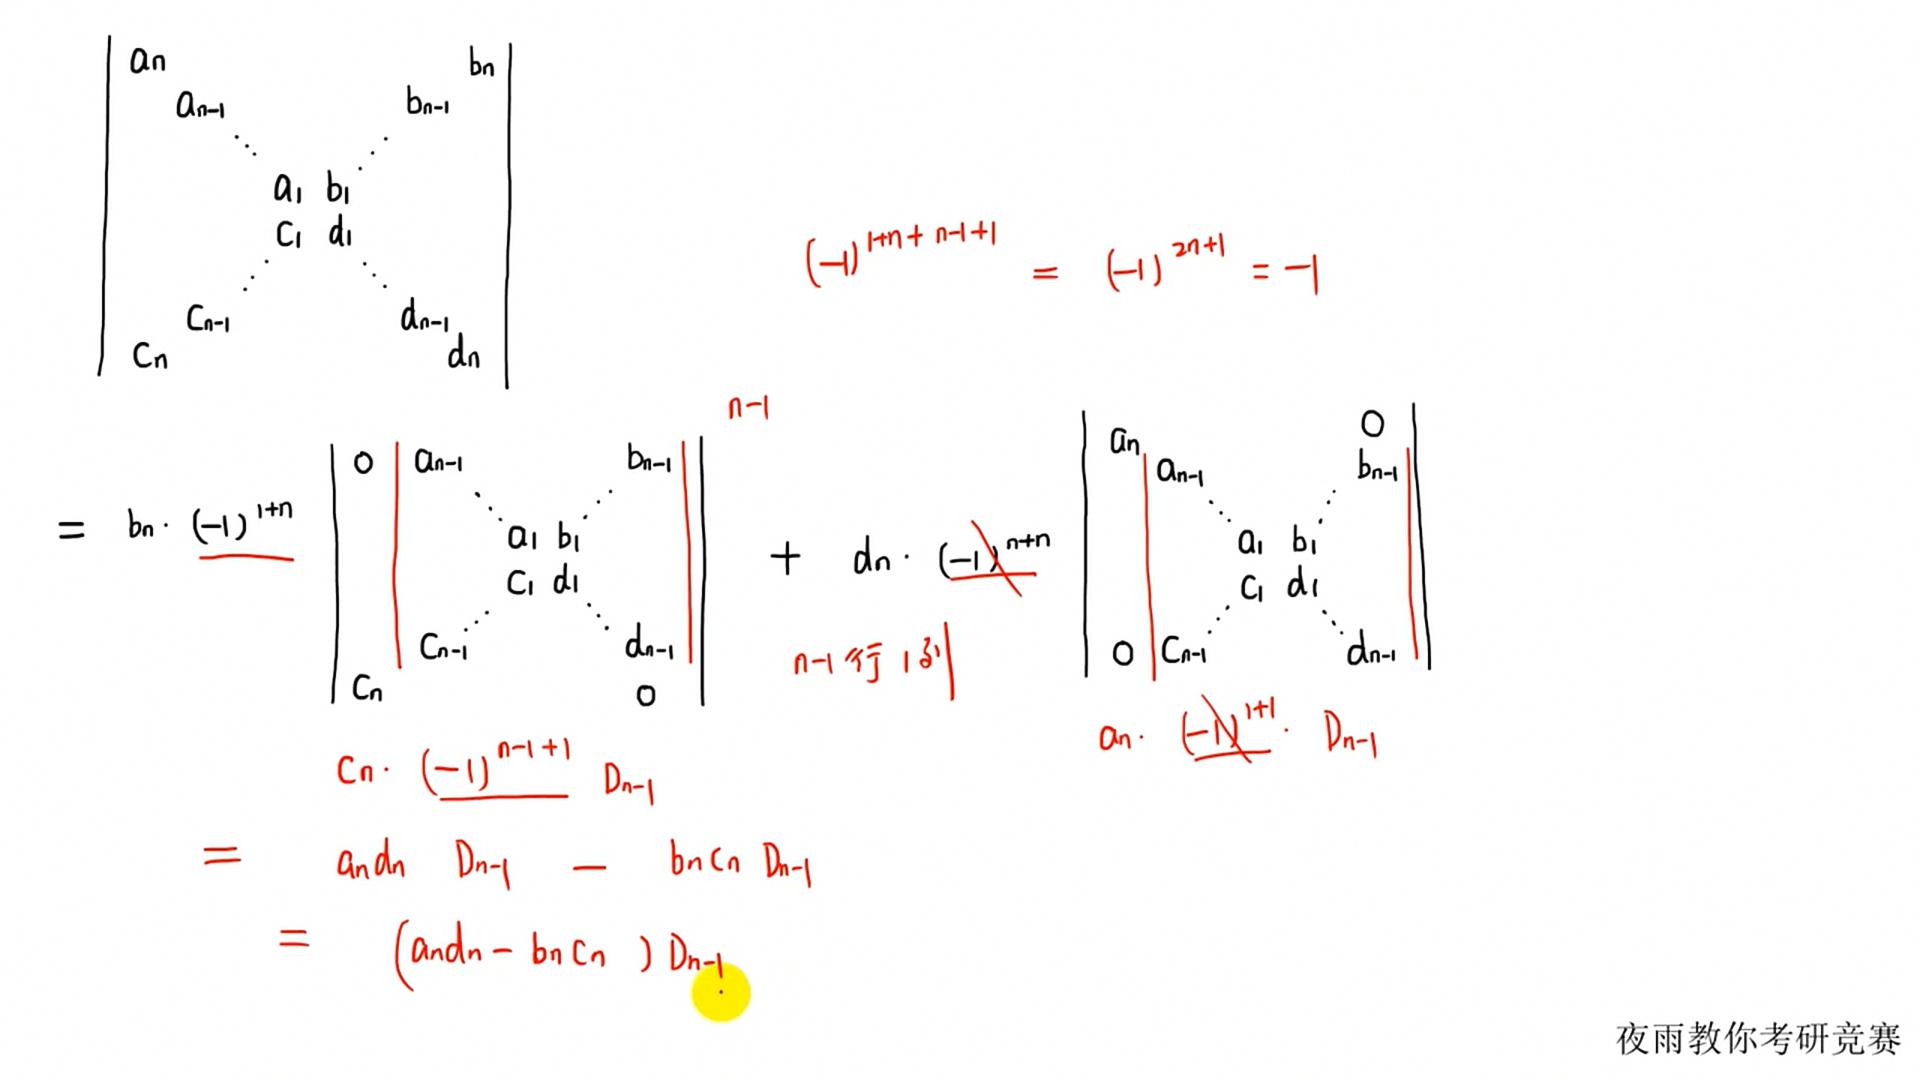 aₙ bₙ
aₙ₋₁ bₙ₋₁
⋱ ⋰
a₁ b₁
c₁ d₁
⋰ ⋱
cₙ₋₁ dₙ₋₁
cₙ dₙ
(-1)^(1+n+n-1+1) = (-1)^(2n+1) = -1
= bₙ · (-1)^(1+n)
0 aₙ₋₁ bₙ₋₁
⋱ ⋰
a₁ b₁
c₁ d₁
⋰ ⋱
cₙ₋₁ dₙ₋₁
cₙ 0
n-1
+ dₙ · (-1)^(n+n)
n-1行 1列
aₙ 0
aₙ₋₁ bₙ₋₁
⋱ ⋰
a₁ b₁
c₁ d₁
⋰ ⋱
0 cₙ₋₁ dₙ₋₁
cₙ · (-1)^(n-1+1) Dₙ₋₁
aₙ · (-1)^(1+1) · Dₙ₋₁
= aₙdₙ Dₙ₋₁ - bₙcₙ Dₙ₋₁
= (aₙdₙ - bₙcₙ) Dₙ₋₁
夜雨教你考研竞赛